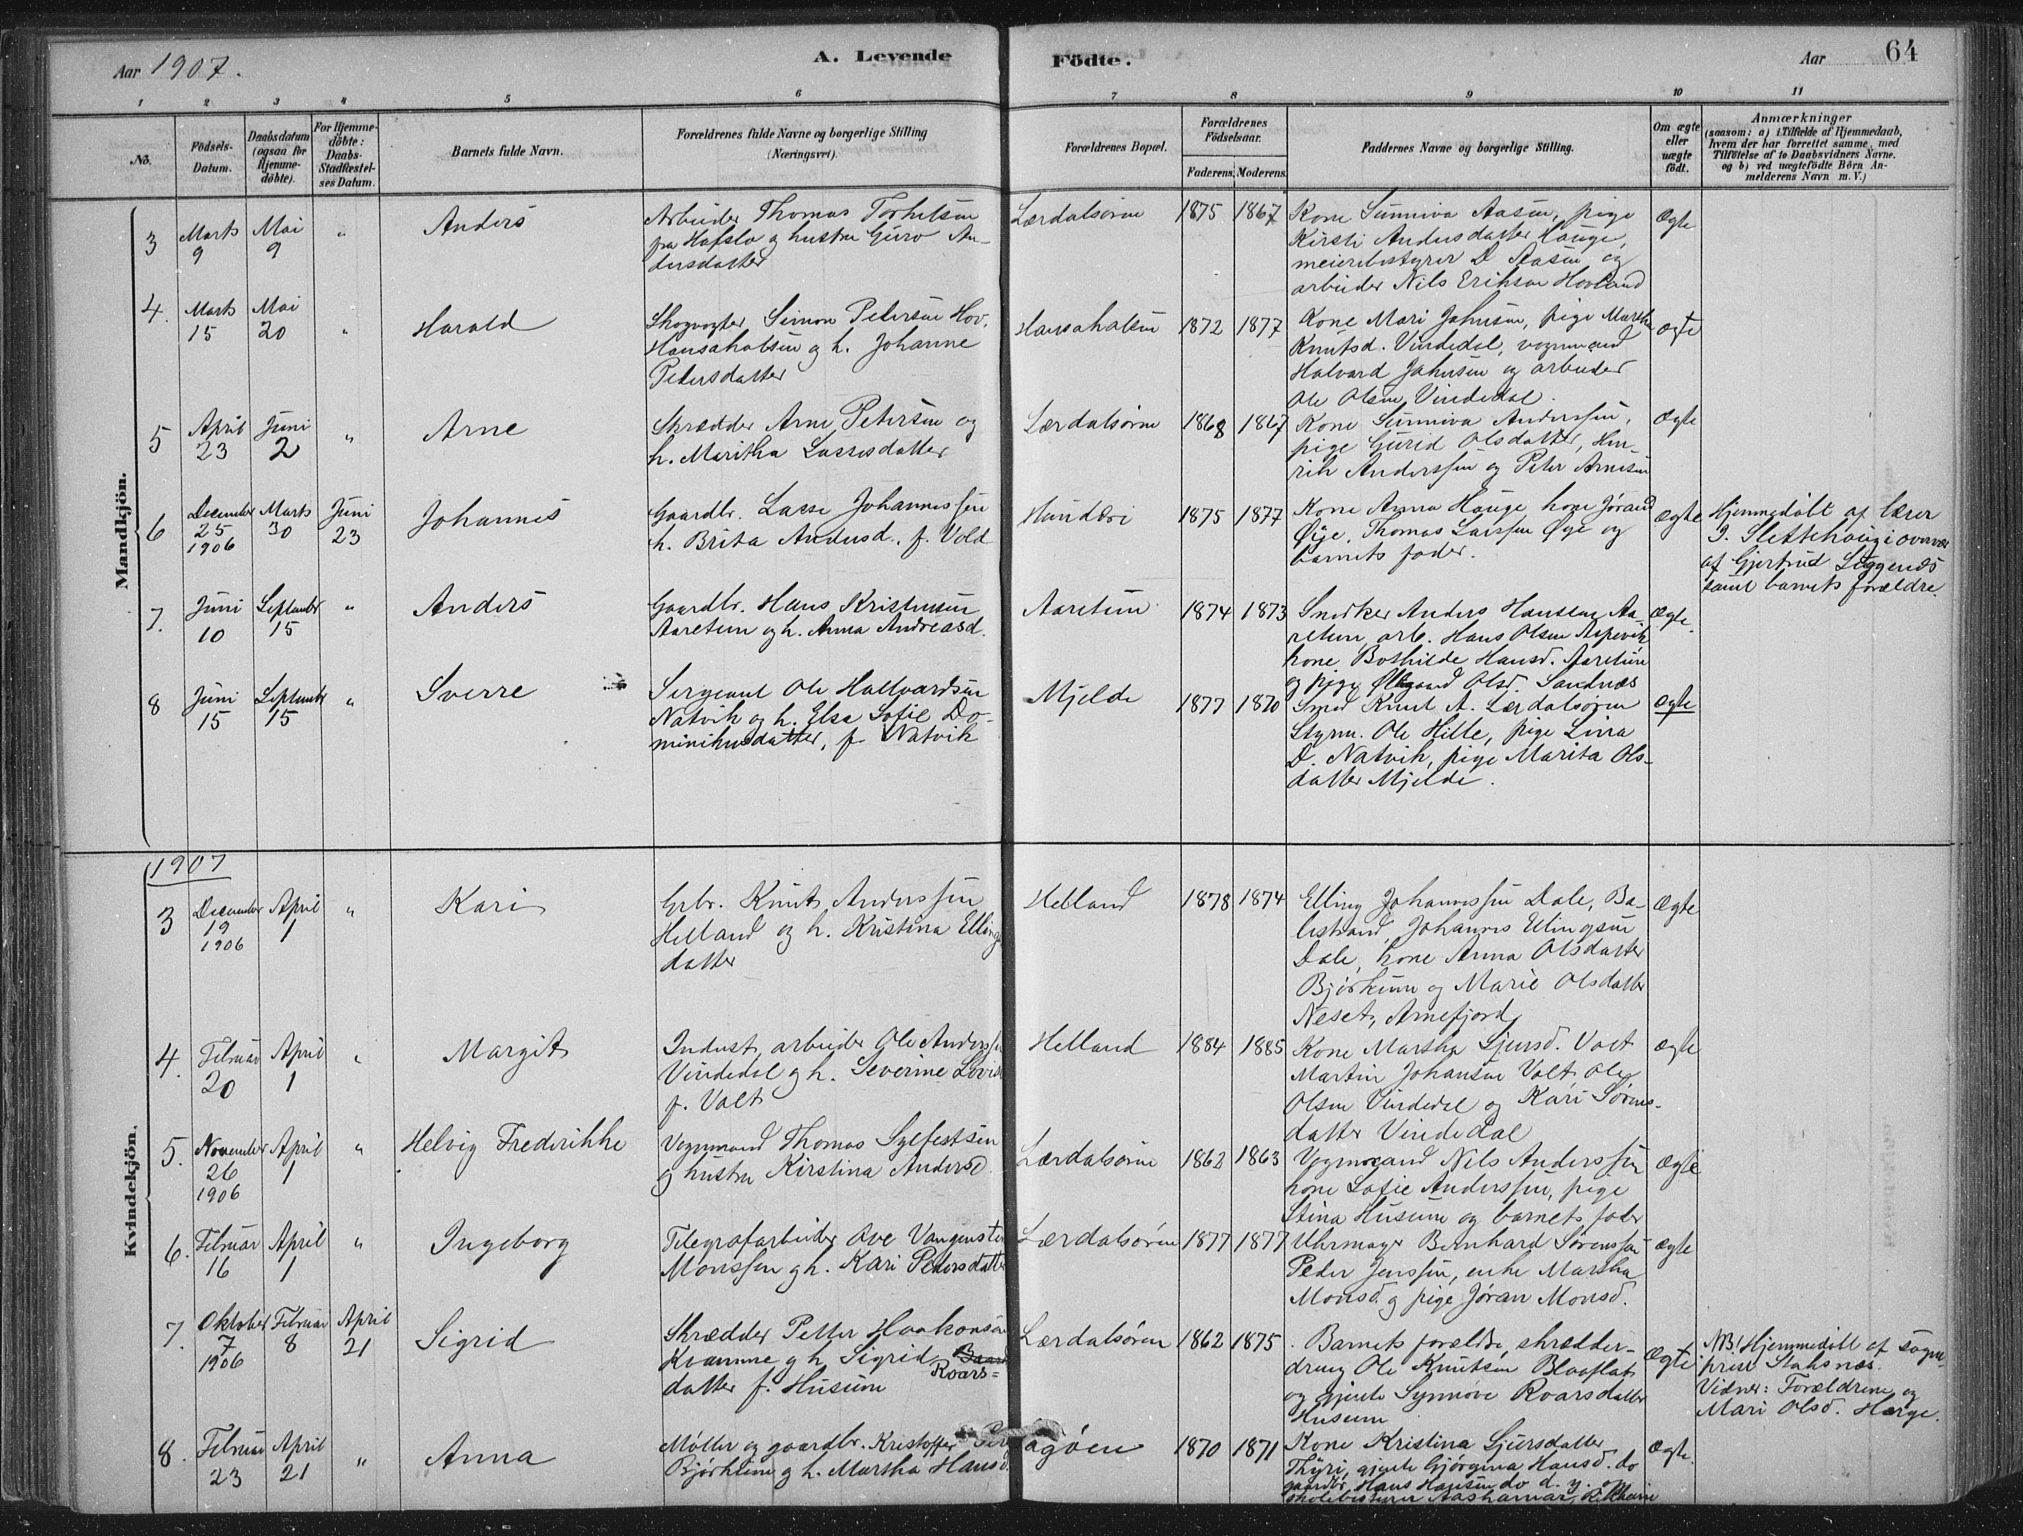 Aar 1907.
A. Levende Födte.
Aar
64
1 2 3 4 5 6 7 8 9 10 11
No.
Födsels-Datum.
Daabsdatum (ogsaa for Hjemme-döbte).
For Hjemme-döbte: Daabs-Stadfæstel-ses Datum.
Barnets fulde Navn.
Forældrenes fulde Navne og borgerlige Stilling (Næringsvei).
Forældrenes Bopæl.
Forældrenes Födselsaar.
Faderens. Moderens.
Faddernes Navne og borgerlige Stilling.
Om ægte eller uægte födt.
Anmærkninger
(saasom: a) i Tilfælde af Hjemmedaab,
hvem der har forrettet samme, med
Tilföielse af to Daabsvidners Navne,
og b) ved uægtefödte Börn An-
melderens Navn m. V.)
Mandkjön.
3 Marts 9 Mai 9 " Anders
Arbeider Thomas Torkelsen
fra Hafslo og hustru Guro An-
dersdatter
Lærdalsøren 1875 1867
Kone Sunniva Aasen, pige
Kirsti Andersdatter Hauge,
meieribestyrer D. Aasen og
arbeider Nils Eriksen Hovland
Ægte
4. Marts 15 Mai 20 " Harald
Skogvogter Simon Petersen Hov,
Hansahalsen og h. Johanne
Petersdatter
Hansahalsen 1872 1877
Kone Mari Johnsen, pige Martha
Knutsd. Vindedal, vognmand
Halvard Johnsen og arbeider
Ole Olsen Vindedal.
Ægte
5 April 23 Juni 2 " Arne
Skrædder Arne Petersen og
h. Maritha Lassesdatter
Lærdalsøren 1868 1867
Kone Sunniva Anderssen,
pige Gurid Olsdatter, Hen-
rik Anderssen og Peter Arnesen
Ægte
6 December 25 1906 Marts 30 Juni 23 Johannes
Gaardbr. Lasse Johannessen
h. Brita Andersd. f. Vold
1875 1877
Kone Anna Hauge, kone Jørand
Øye, Thomas Larssen Øye og
barnets fader.
Ægte
Hjemmedøbt af lærer
J. Slettehaug i overvær
af Gjertrud
samt barnets forældre.
7. Juni 10 September 15 " Anders
Gaardbr. Hans Kristensen
Aaretun og h. Anna Andreasd.
Aaretun 1874 1873
Snedker Anders Hanssen Aa-
retun, arb. Hans Olsen Aspevik,
kone Bothilde Hansd. Aaretun
og pige Olsd. Sandnæs
Ægte.
8 Juni 15 September 15 " Sverre
Sergeant Ole Hallvardsen
Natvik og h. Elsa Sofie Do-
minikusdatter, f. Natvik
Mjelde 1877 1870
Smed Knut A. Lærdalsøren
Styrm. Ole Hille, pige Lina
D. Natvik, pige Marita Ols-
datter Mjelde.
Ægte
Kvindekjön.
1907
3 December 19 1906 April 1 " Kari
Grbr. Knut Anderssen
Helland og h. Kristina Ellings
datter
Helland 1878 1874
Elling Johannessen Dale, Ba-
lestrand, Johannes Ellingsen
Dale, kone Anna Olsdatter
Bjørkum og Marie Olsdatter
Neset, Arnefjord
Ægte
4. Februar 20 April 1 " Margit
Indust. arbeider Ole Anderssen
Vindedal og h. Severine Lovise
f. Valt
Helland 1884 1885
Kone Martha Sjursd. Valt
Martin Johansen Valt, Ole
Olsen Vindedal og Kari Sørens-
datter Vindedal
Ægte
5. November 26 1906 April 1 " Helvig Frederikke
Vognmand Thomas Sylfestsen
og hustru Kirstina Andersd.
Lærdalsøren 1862 1863
Vognmand Nils Anderssen
kone Sofie Anderssen, pige
Stina Husum og barnets fader
Ægte
6. Februar 16 April 1 " Ingeborg
Telegrafarbeider Ove Vangensten
Monssen og h. Kari Pedersdatter
Lærdalsøren 1877 1877
Uhrmager Bernhard Sørenssen
Peder Jenssen, enke Martha
Monsd. og pige Jøran Monsd.
Ægte
7. Oktober 7 1906 Februar 8 April 21 Sigrid
Skrædder Petter Haakonsen
Kvamme og h. Sigrid Roars-
datter f. Husum
Lærdalsøren 1862 1875
Barnets forældre, skrædder-
dreng Ole Knutsen Blaaflat
og gjente Synnøve Roarsdatter
Husum
Ægte
NB! Hjemmedøbt af sogne-
prest Stahsnæs.
Vidner: Forældrene og
Mari Olsd. Hauge.
8. Februar 23 April 21 " Anna
Møller og gaardbr. Kristoffer
Bjørkum og h. Martha Hansd.
1870 1871
Kone Kristina Sjursdatter
Thyri, gjente Gjørgina Hansd. do
gaardbr. Hans Hansen do d. y. og
skolebestyrer Aashamar,
Ægte.